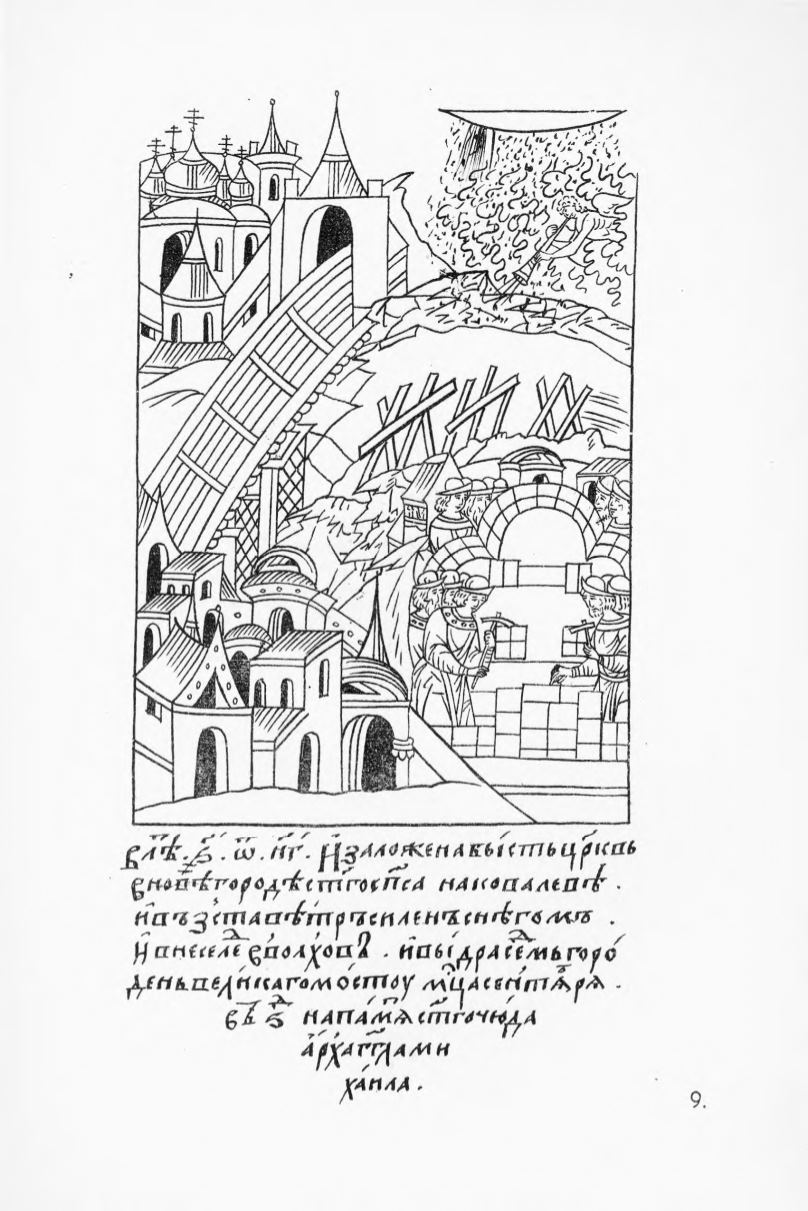 в лѣ ҂ѕ . ѿ . нг . И заложена бысть црковь
в новѣгородѣ стго спса на ковалевѣ .
и въ зста вѣтръ силенъ снѣгомъ .
и внесе лед в волховъ . и выдра семь горо
день великаго мостоу мца сентября .
въ ѕ на памя стго чюда
архаггла ми
хаила .
9.